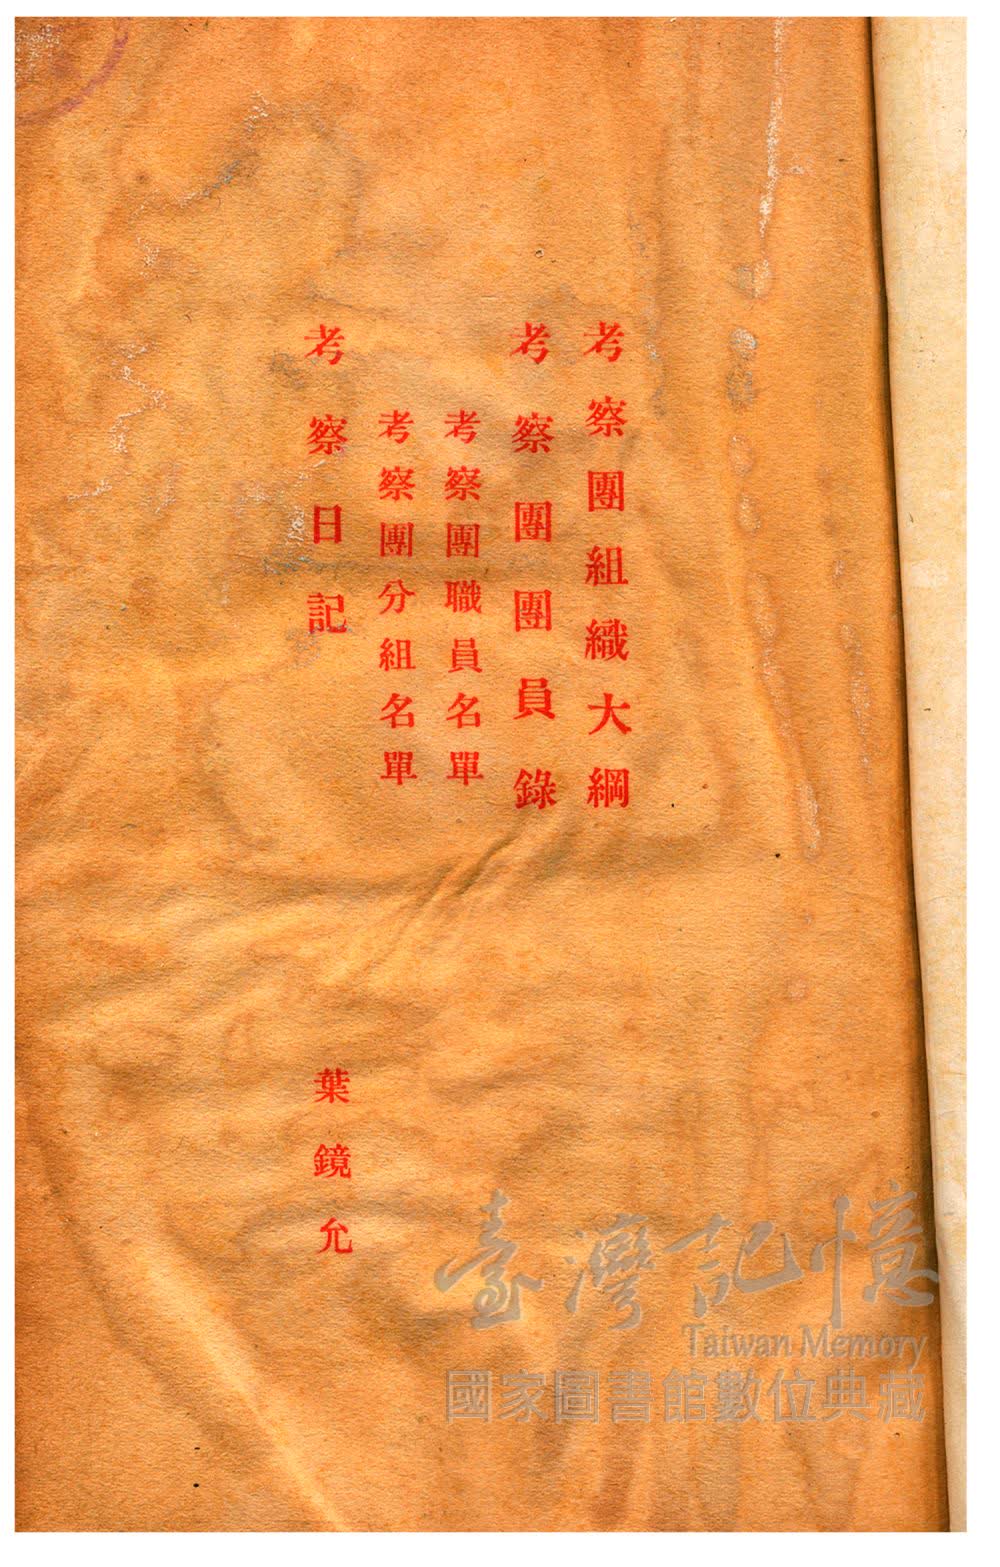 考察團組織大綱
考察團團員錄
考察團職員名單
考察團分組名單
考察日記
葉鏡允
臺灣記憶
Taiwan Memory
國家圖書館數位典藏